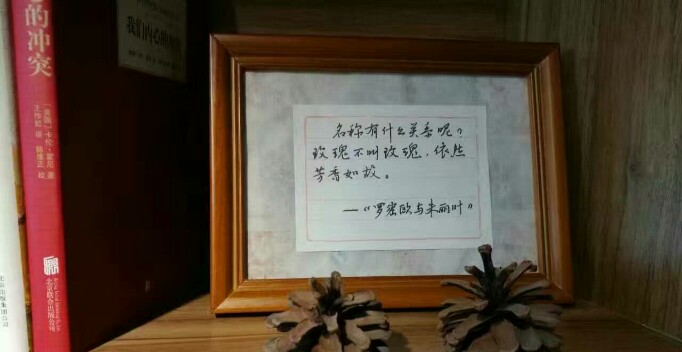 的冲突
[美国] 卡伦·霍尼 著
王作虹 译
北京联合出版公司
我们内心的
名称有什么关系呢？
玫瑰不叫玫瑰，依然
芳香如故。
——《罗密欧与朱丽叶》